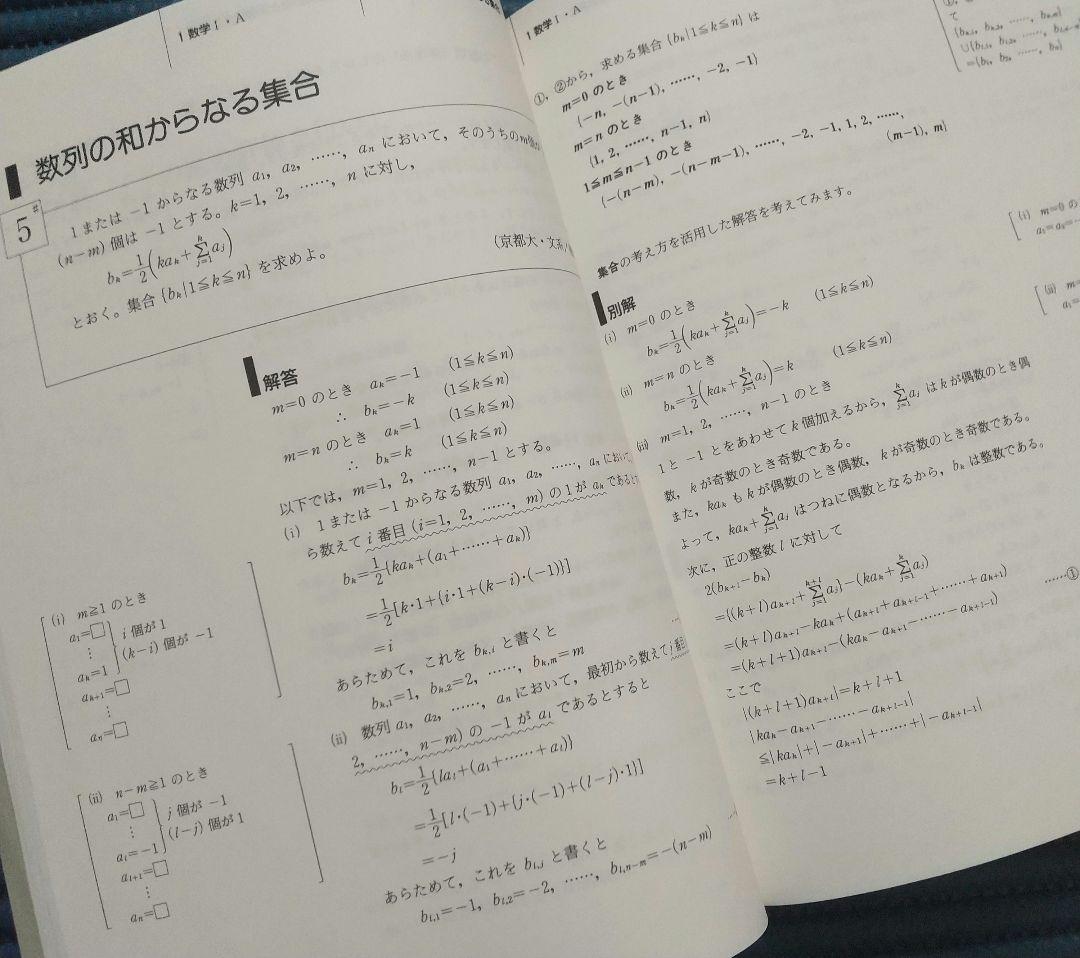 1 数学Ⅰ・A
数列の和からなる集合
5#
1または −1 からなる数列 a₁, a₂, ……, aₙ において, そのうちの
(n−m) 個は −1 とする。k=1, 2, ……, n に対し,
bₖ=1/2(kaₖ+Σ[j=1→k]aⱼ)
とおく。集合 {bₖ|1≦k≦n} を求めよ。
(京都大・文系
解答
m=0 のとき aₖ=−1 (1≦k≦n)
∴ bₖ=−k (1≦k≦n)
m=n のとき aₖ=1 (1≦k≦n)
∴ bₖ=k (1≦k≦n)
以下では, m=1, 2, ……, n−1 とする。
(i) 1または −1 からなる数列 a₁, a₂, ……, aₙ におい
ら数えて i 番目 (i=1, 2, ……, m) の1が aₖ であると
bₖ=1/2{kaₖ+(a₁+……+aₖ)}
=1/2[k・1+{i・1+(k−i)・(−1)}]
=i
あらためて, これを bₖ,ᵢ と書くと
bₖ,₁=1, bₖ,₂=2, ……, bₖ,ₘ=m
(ii) 数列 a₁, a₂, ……, aₙ において, 最初から数えて j 番
2, ……, n−m) の −1 が aₗ であるとすると
bₗ=1/2{laₗ+(a₁+……+aₗ)}
=1/2[l・(−1)+{j・(−1)+(l−j)・1}]
=−j
あらためて, これを bₗ,ⱼ と書くと
bₗ,₁=−1, bₗ,₂=−2, ……, bₗ,ₙ₋ₘ=−(n−m)
(i) m≧1 のとき
a₁=□
⋮
aₖ=1
i 個が 1
(k−i) 個が −1
aₖ₊₁=□
⋮
aₙ=□
(ii) n−m≧1 のとき
a₁=□
⋮
aₗ=−1
j 個が −1
(l−j) 個が 1
aₗ₊₁=□
⋮
aₙ=□
1 数学Ⅰ・A
①, ②から, 求める集合 {bₖ|1≦k≦n} は
m=0 のとき
{−n, −(n−1), ……, −2, −1}
m=n のとき
{1, 2, ……, n−1, n}
1≦m≦n−1 のとき
{−(n−m), −(n−m−1), ……, −2, −1, 1, 2, ……,
(m−1), m}
集合の考え方を活用した解答を考えてみます。
別解
(i) m=0 のとき
bₖ=1/2(kaₖ+Σ[j=1→k]aⱼ)=−k (1≦k≦n)
(ii) m=n のとき
bₖ=1/2(kaₖ+Σ[j=1→k]aⱼ)=k (1≦k≦n)
(iii) m=1, 2, ……, n−1 のとき
1と −1 とをあわせて k 個加えるから, Σ[j=1→k]aⱼ は k が偶数のとき偶
数, k が奇数のとき奇数である。
また, kaₖ も k が偶数のとき偶数, k が奇数のとき奇数である。
よって, kaₖ+Σ[j=1→k]aⱼ はつねに偶数となるから, bₖ は整数である。
次に, 正の整数 l に対して
2(bₖ₊ₗ−bₖ)
={(k+l)aₖ₊ₗ+Σ[j=1→k+l]aⱼ}−(kaₖ+Σ[j=1→k]aⱼ)
=(k+l)aₖ₊ₗ−kaₖ+(aₖ₊ₗ+aₖ₊ₗ₋₁+……+aₖ₊₁)
=(k+l+1)aₖ₊ₗ−(kaₖ−aₖ₊₁−……−aₖ₊ₗ₋₁) ……①
ここで
|(k+l+1)aₖ₊ₗ|=k+l+1
|kaₖ−aₖ₊₁−……−aₖ₊ₗ₋₁|
≦|kaₖ|+|−aₖ₊₁|+……+|−aₖ₊ₗ₋₁|
=k+l−1
て
(i) m=0 の
(ii)